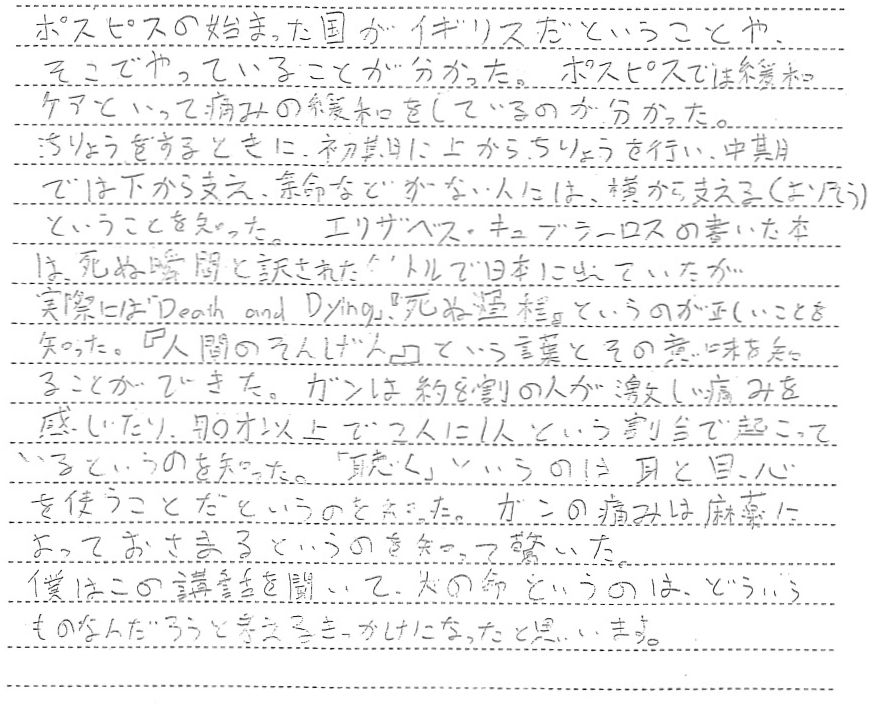 ポスピスの始まった国がイギリスだということや、
そこでやっていることが分かった。 ポスピスでは緩和
ケアといって痛みの緩和をしているのが分かった。
ちりょうをするときに、初期に上からちりょうを行い、中期
では下から支え、余命などがない人には、横から支える(よりそう)
ということを知った。 エリザベス・キュブラーロスの書いた本
は、死ぬ瞬間と訳されたタイトルで日本に出ていたが
実際には「Death and Dying」、『死ぬ過程』というのが正しいことを
知った。『人間のそんげん』という言葉とその意味を知
ることができた。ガンは約8割の人が激しい痛みを
感じたり、才以上で2人に1人という割合で起こって
いるというのを知った。「聴く」というのは耳と目、心
を使うことだというのを知った。ガンの痛みは麻薬に
よっておさまるというのを知って驚いた。
僕はこの講話を聞いて、人の命というのは、どういう
ものなんだろうと考えるきっかけになったと思います。